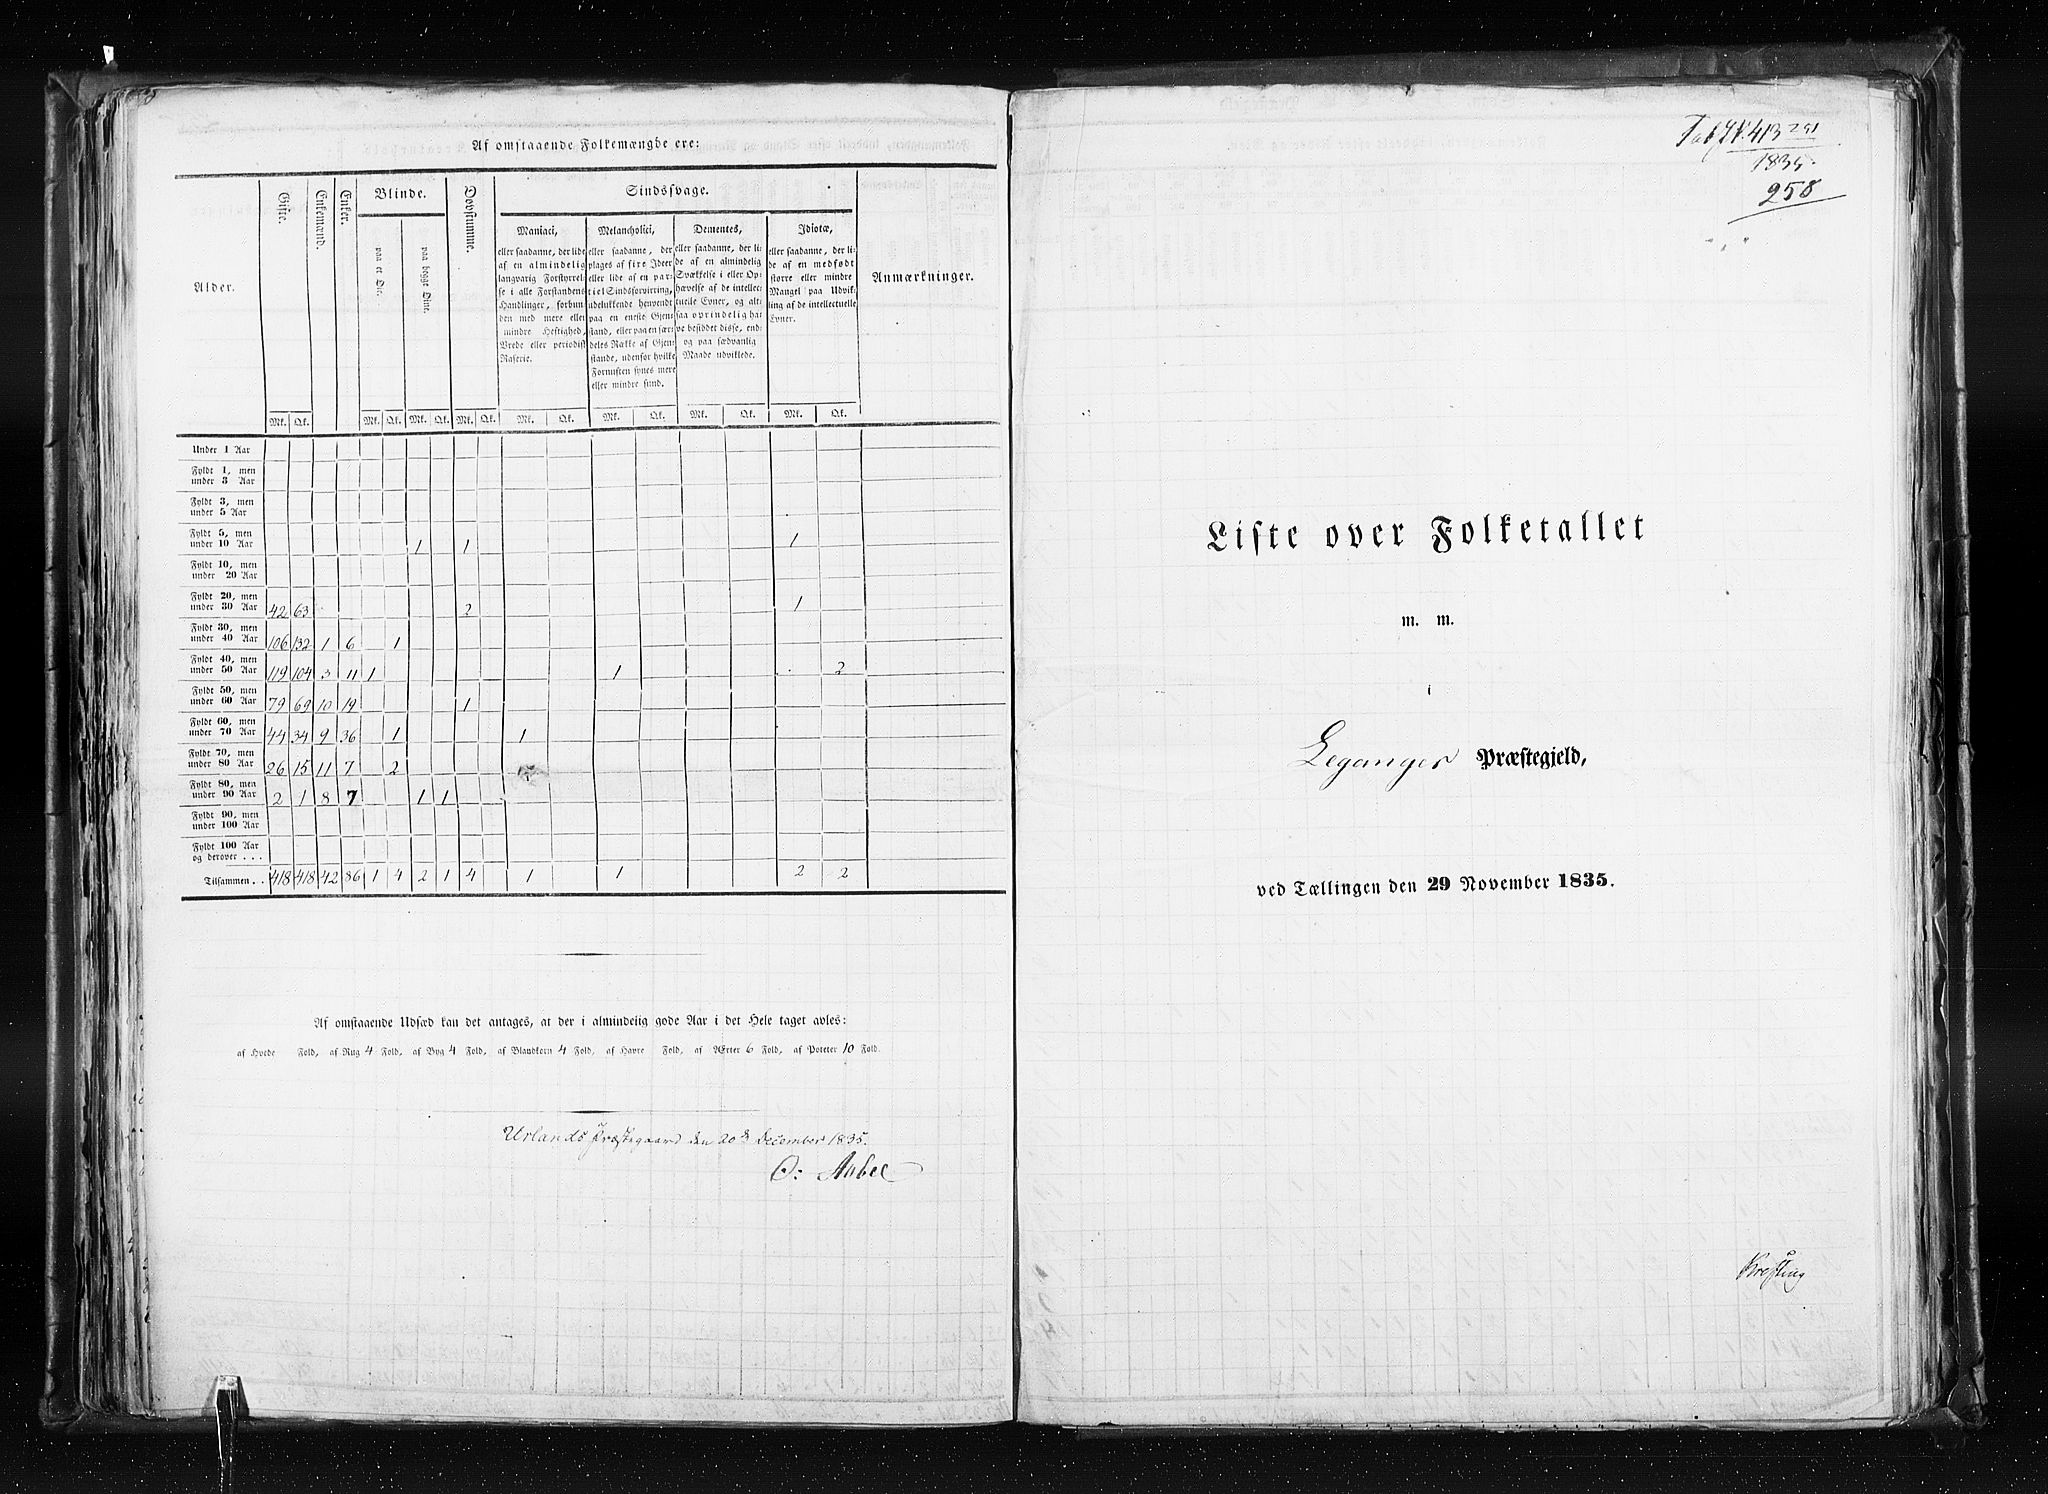 Af omstaaende Folkemængde ere:
Alder.
Gifte.
Enkemænd.
Enker.
Blinde.
paa et Øie.
paa begge Øine.
Døvstumme.
Sindssvage.
Maniaci,
eller saadanne, der lide
af en almindelig
langvarig Forstyrrel-
se i alle Forstandens
Handlinger, forbun-
den med mere eller
mindre Heftighed,
Vrede eller periodisk
Raserie.
Melancholici,
eller saadanne, der
plages af fixe Ideer
eller lide af en par-
tiel Sindsforvirring,
udelukkende henvendt
paa en eneste Gjen-
stand, eller paa en sær-
deles Række af Gjen-
stande, udenfor hvilke
Fornuften synes mere
eller mindre sund.
Dementes,
eller saadanne, der li-
de af en almindelig
Svækkelse i eller Op-
hævelse af de intellec-
tuelle Evner, og alt-
saa oprindelig ha-
ve besiddet disse, end-
og paa sædvanlig
Maade udviklede.
Idiotæ,
eller saadanne, der li-
de af en medfødt
større eller mindre
Mangel paa Udvik-
ling af de intellectuelle
Evner.
Anmærkninger.
Mk. Qk. Mk. Qk. Mk. Qk. Mk. Qk. Mk. Qk. Mk. Qk. Mk. Qk. Mk. Qk.
Under 1 Aar
Fyldt 1, men
under 3 Aar
Fyldt 3, men
under 5 Aar
Fyldt 5, men
under 10 Aar 1 1 1
Fyldt 10, men
under 20 Aar
Fyldt 20, men
under 30 Aar 42 63 2 1
Fyldt 30, men
under 40 Aar 106 132 1 6 1
Fyldt 40, men
under 50 Aar 119 104 3 11 1 1 2
Fyldt 50, men
under 60 Aar 79 69 10 19 1
Fyldt 60, men
under 70 Aar 44 34 9 36 1 1
Fyldt 70, men
under 80 Aar 26 15 11 7 2
Fyldt 80, men
under 90 Aar 2 1 8 7 1 1
Fyldt 90, men
under 100 Aar
Fyldt 100 Aar
og derover . . .
Tilsammen . . 418 418 42 86 1 4 2 1 4 1 1 2 2
Af omstaaende Udsæd kan det antages, at der i almindelig gode Aar i det Hele taget avles:
af Hvede Fold, af Rug 4 Fold, af Byg 4 Fold, af Blandkorn 4 Fold, af Havre Fold, af Ærter 6 Fold, af Poteter 10 Fold.
Urlands Præstegaard den 20d December 1835.
O: Aabel
1835
258
Liste over Folketallet
m. m.
i
Leganger Præstegjeld,
ved Tællingen den 29 November 1835.
Krefting